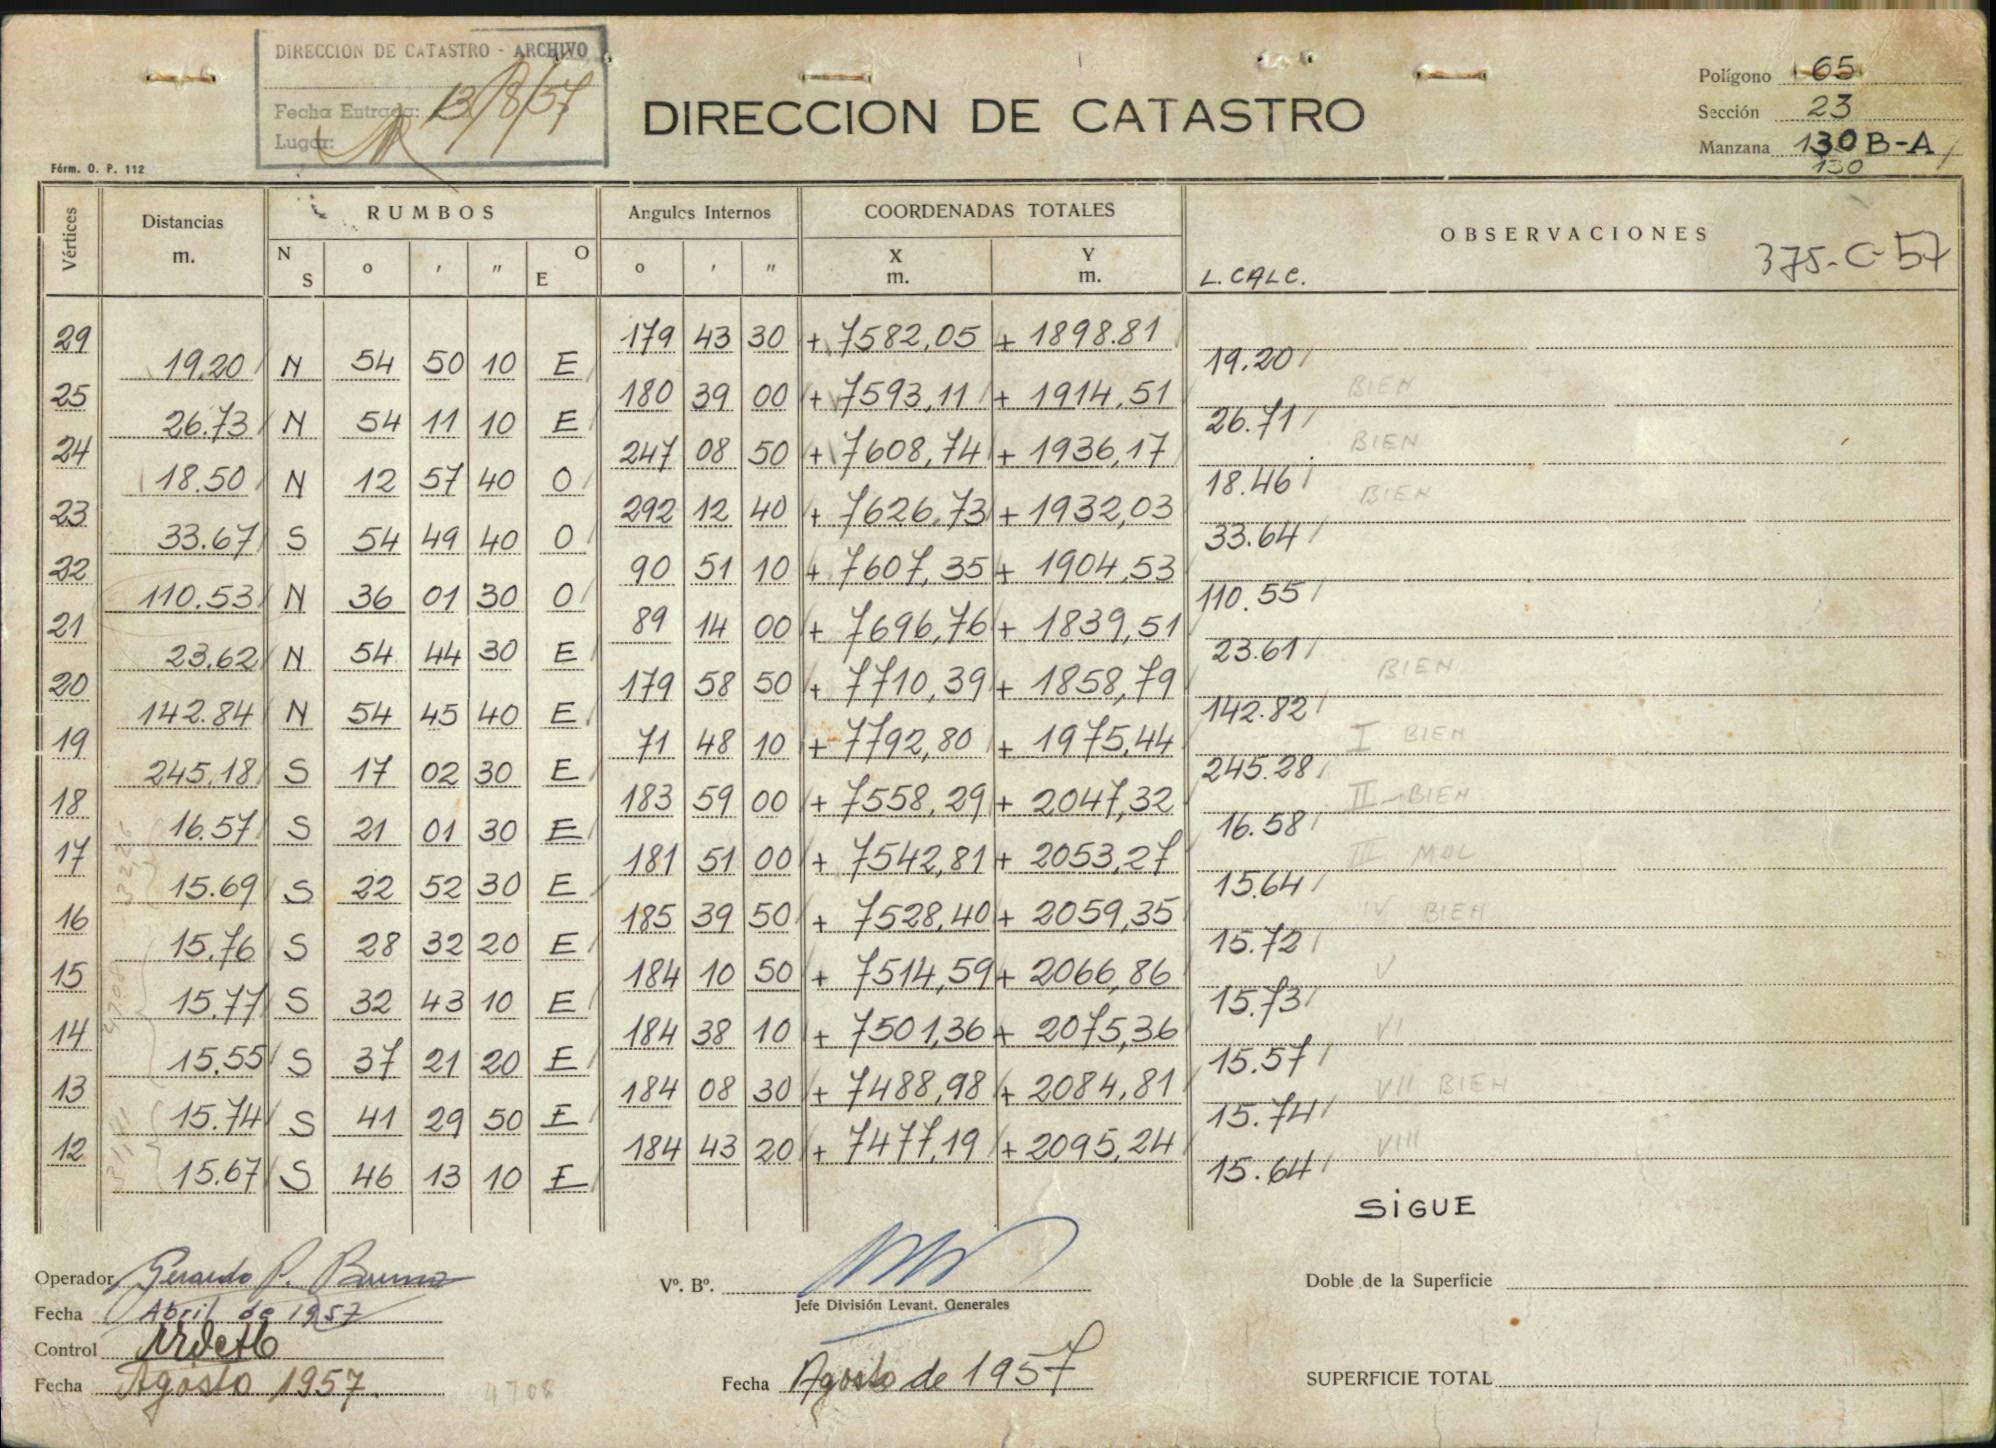 DIRECCION DE CATASTRO - ARCHIVO
Fecha Entrada: 13/8/57
Lugar:
DIRECCION DE CATASTRO
Polígono 65
Sección 23
Manzana 130 B-A
130
Fórm. O. P. 112
Vértices Distancias m. RUMBOS Angulos Internos COORDENADAS TOTALES OBSERVACIONES
375-C-57
N S o ' " O E o ' " X m. Y m. L. CALC.
29 179 43 30 + 7582,05 + 1898.81
19.20 N 54 50 10 E 19.20
25 180 39 00 + 7593,11 + 1914,51 BIEN
26.73 N 54 11 10 E 26.71
24 247 08 50 + 7608,74 + 1936,17 BIEN
18.50 N 12 57 40 O 18.46
23 292 12 40 + 7626,73 + 1932,03 BIEN
33.67 S 54 49 40 O 33.64
22 90 51 10 + 7607,35 + 1904,53
110.53 N 36 01 30 O 110.55
21 89 14 00 + 7696,76 + 1839,51
23.62 N 54 44 30 E 23.61
20 179 58 50 + 7710,39 + 1858,79 BIEN
142.84 N 54 45 40 E 142.82
19 71 48 10 + 7792,80 + 1975,44 I BIEN
245.18 S 17 02 30 E 245.28
18 183 59 00 + 7558,29 + 2047,32 II - BIEN
16.57 S 21 01 30 E 16.58
17 181 51 00 + 7542,81 + 2053,27 III MAL
15.69 S 22 52 30 E 15.64
16 185 39 50 + 7528,40 + 2059,35 IV BIEN
15.76 S 28 32 20 E 15.72
15 184 10 50 + 7514,59 + 2066,86 V
15.77 S 32 43 10 E 15.73
14 184 38 10 + 7501,36 + 2075,36 VI
15.55 S 37 21 20 E 15.57
13 184 08 30 + 7488,98 + 2084,81 VII BIEN
15.74 S 41 29 50 E 15.74
12 184 43 20 + 7477,19 + 2095,24 VIII
15.67 S 46 13 10 E 15.64
SiGUE
Operador Gerardo P.
Fecha Abril de 1957
Control
Fecha Agosto 1957.
4708
Vº. Bº.
Jefe División Levant. Generales
Fecha Agosto de 1957
Doble de la Superficie
SUPERFICIE TOTAL